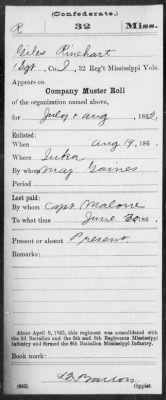 (Confederate.)
R 32 Miss.
Giles Rinehart
Sgt, Co. I, 32 Reg't Mississippi Vols.
Appears on
Company Muster Roll
of the organization named above,
for July & Aug, 1862.
Enlisted:
When Aug 19, 186 .
Where Iuka
By whom Maj Gaines
Period
Last paid:
By whom Capt Malone
To what time June 30, 186 .
Present or absent Present
Remarks:
About April 9, 1865, this regiment was consolidated with
the 3d Battalion and the 8th and 5th Regiments Mississippi
Infantry and formed the 8th Battalion Mississippi Infantry.
Book mark:
(642) Copyist.